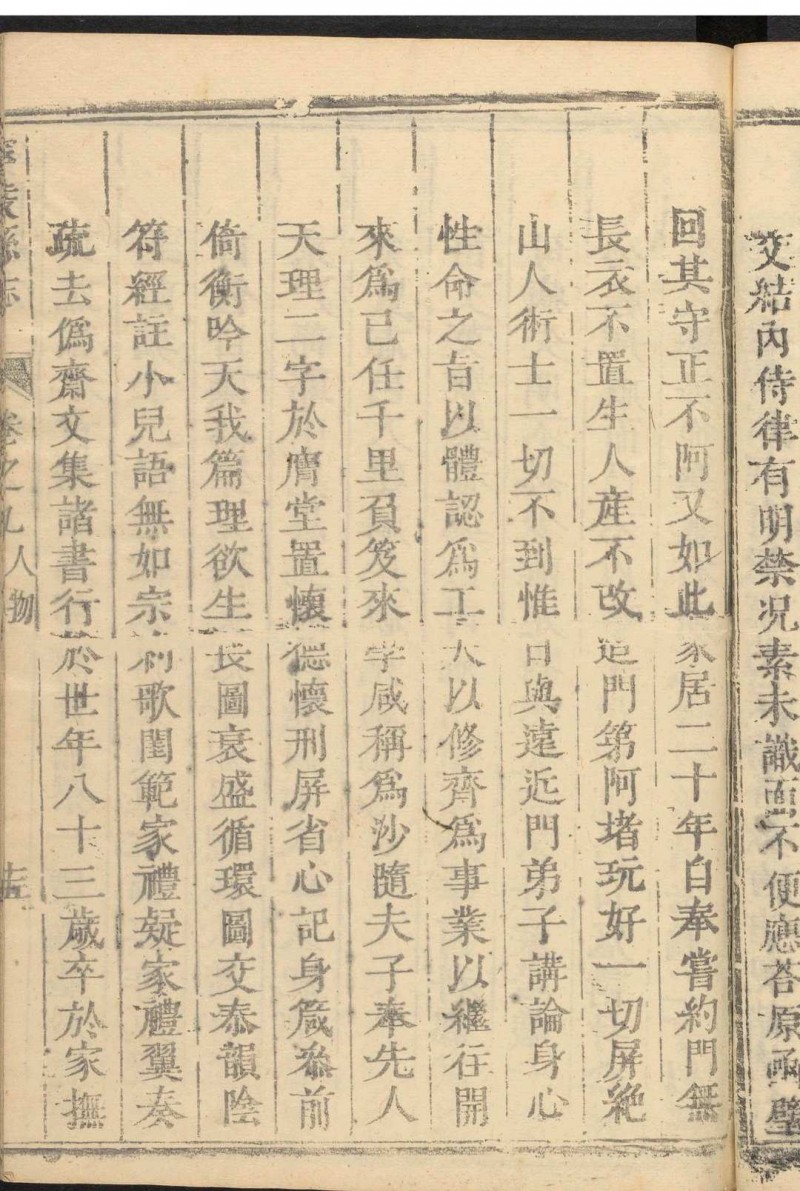 交結內侍律有明禁況素未識面不便應荅原函璧
回其守正不阿又如此家居二十年自奉嘗約門無
長衣不置生人産不改造門第阿堵玩好一切屏絶
山人術士一切不到惟日與遠近門弟子講論身心
性命之旨以體認爲工夫以修齊爲事業以繼往開
來爲已任千里負笈來學咸稱爲沙隨夫子奉先人
天理二字於膺堂置懷德懷刑屏省心記身箴叅前
倚衡吟天我篇理欲生長圖衰盛循環圖交泰韻陰
符經註小兒語無如宗約歌閨範家禮疑家禮翼奏
疏去僞齋文集諸書行於世年八十三歲卒於家撫
寧陵縣志 卷之九人物